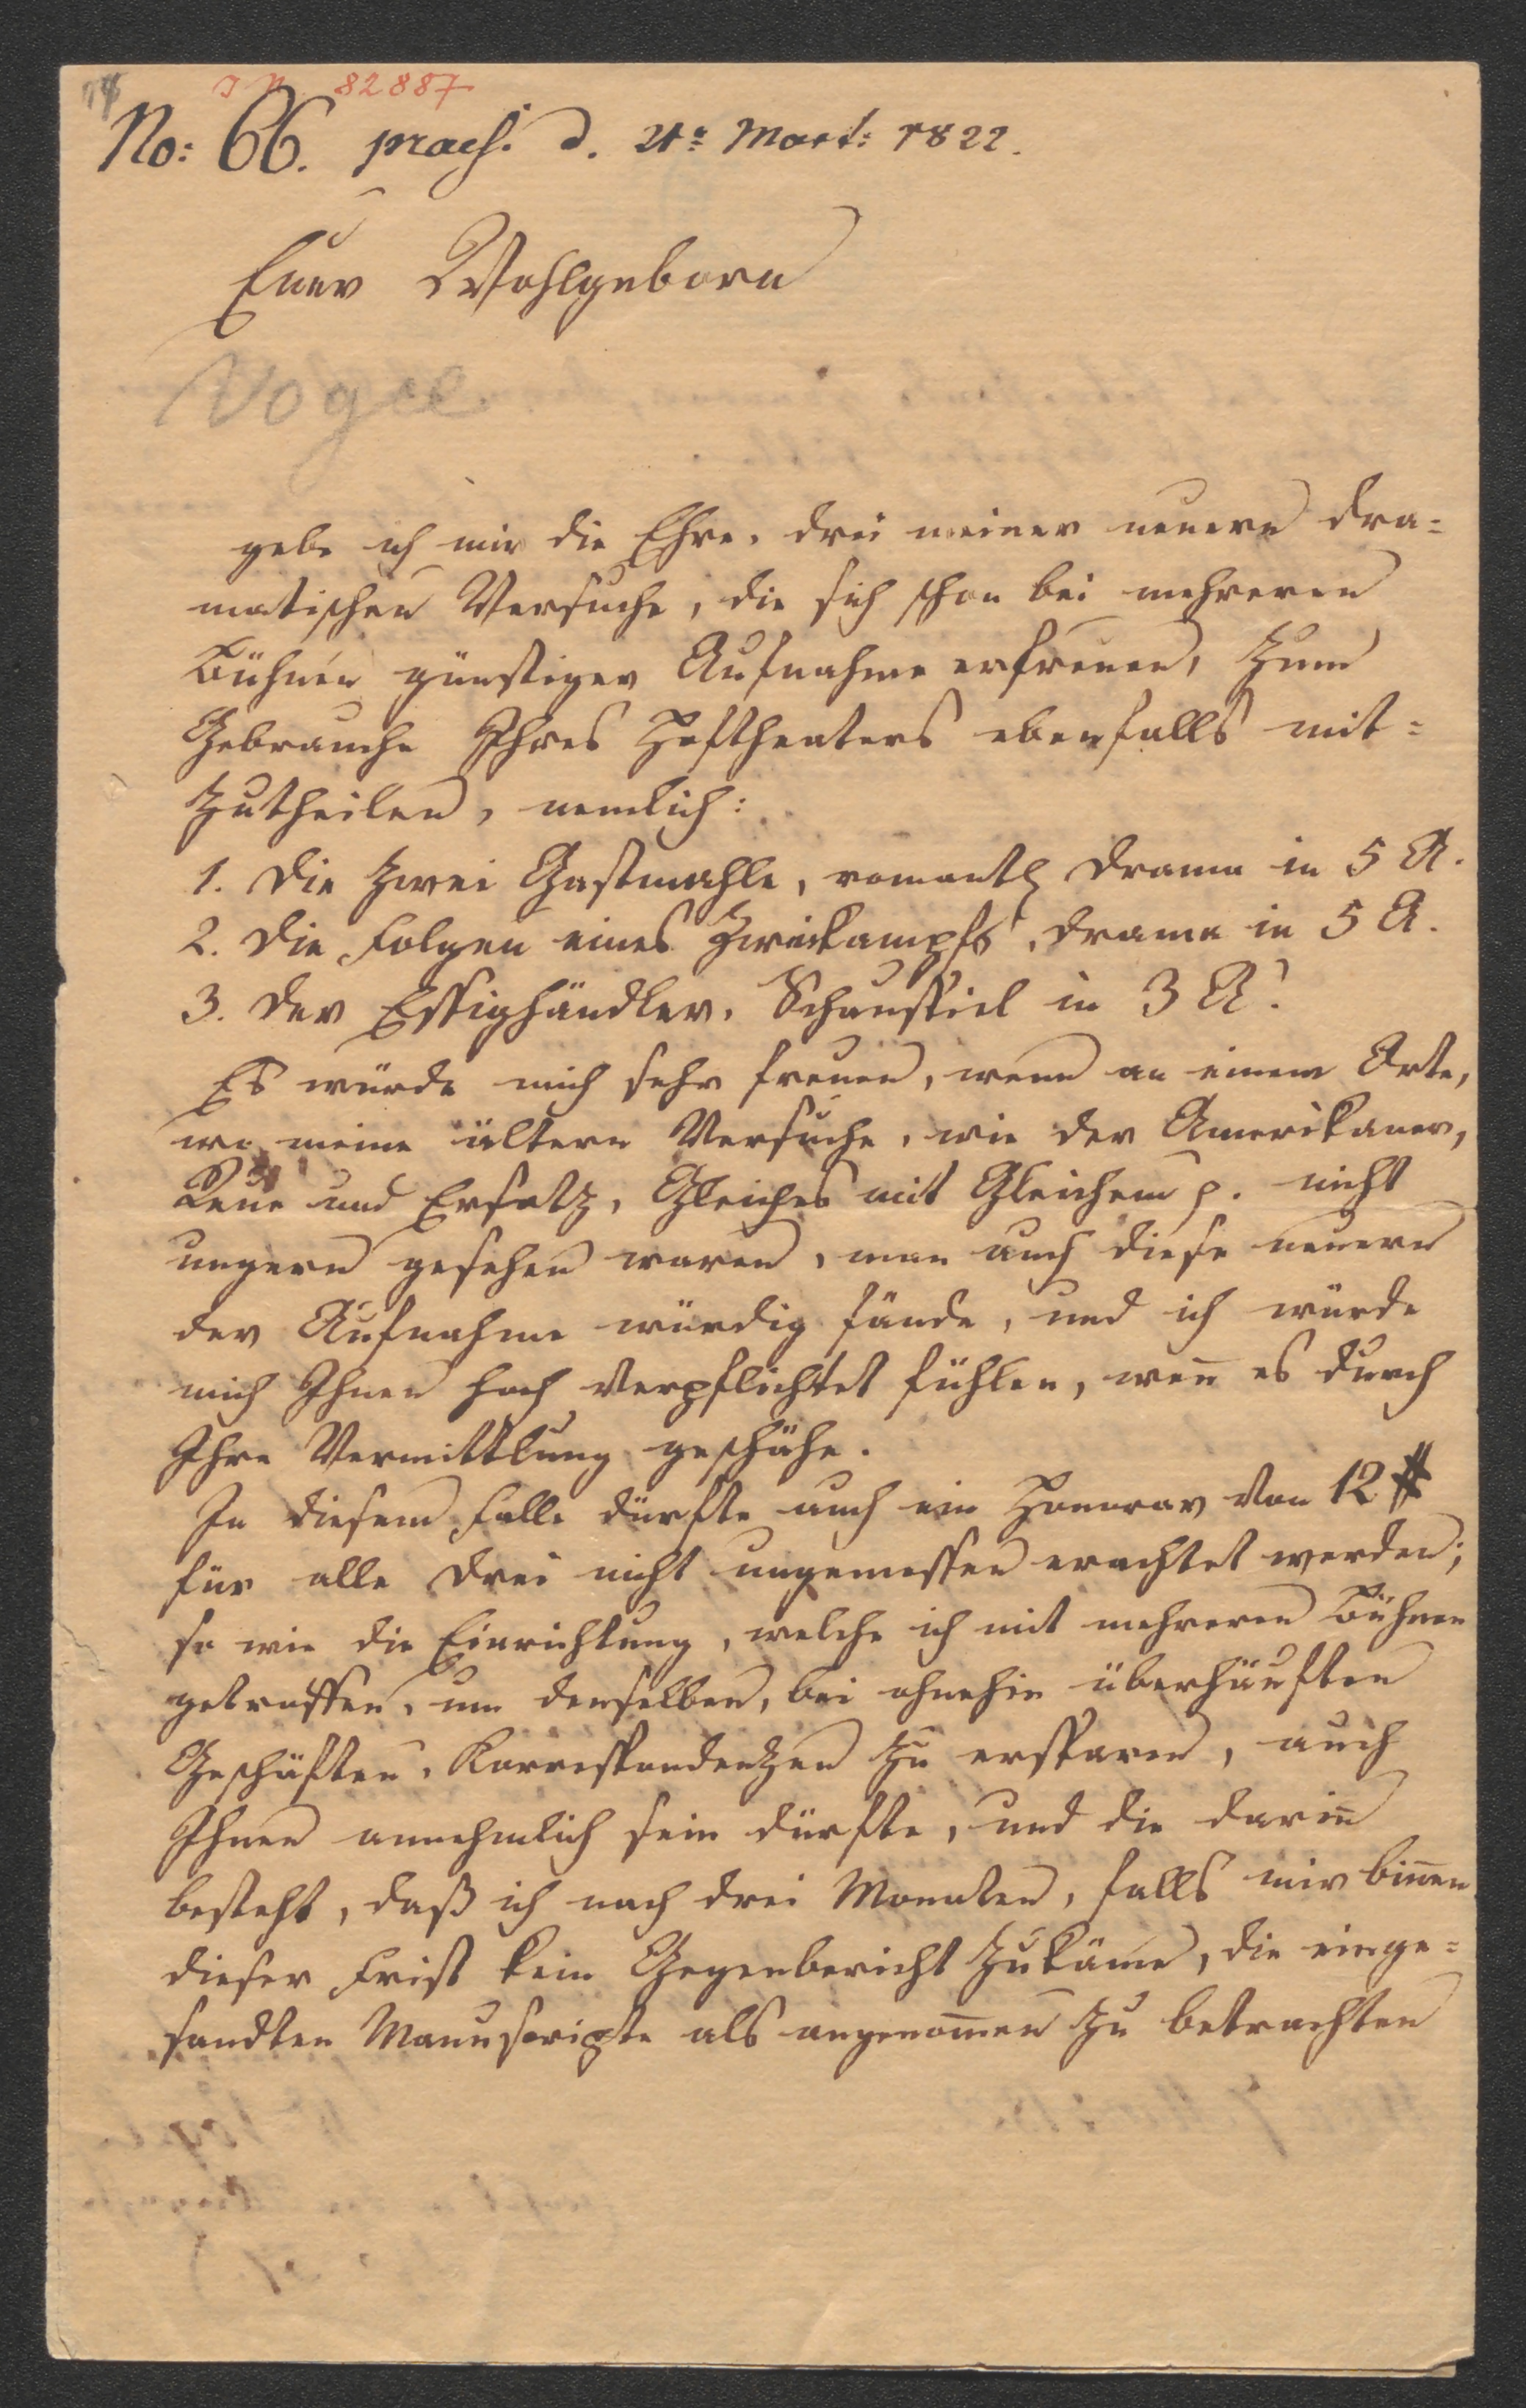 I N 82887
No: 66. praes. d. 21a Mart: 1822.
Euer Wohlgeborn
Vogel
gebe ich mir die Ehre, drei meiner neuern dra=
matischen Versuche, die sich schon bei mehreren
Bühnen günstiger Aufnahme erfreuen, zum
Gebrauche Ihres Hoftheaters ebenfalls mit=
zutheilen, nemlich:
1. Die zwei Gastmahle, romant. Drama in 5 A.
2. Die Folgen eines Zweikampfs, Drama in 5 A.
3. Der Essighändler, Schauspiel in 3 A.
Es würde mich sehr freuen, wenn an einem Orte,
wo meine ältern Versuche, wie der Amerikaner,
Reue und Ersatz, Gleiches mit Gleichem p. nicht
ungern gesehen waren, man auch diese neuern
der Aufnahme würdig fände, und ich würde
mich Ihnen hoch verpflichtet fühlen, weñ es durch
Ihre Vermittlung geschähe.
In diesem Falle dürfte auch ein Honorar von 12 #
für alle drei nicht ungemessen erachtet werden;
so wie die Einrichtung, welche ich mit mehreren Bühnen
getroffen, um denselben, bei ohnehin überhäuften
Geschäften, Korrespondenzen zu ersparen, auch
Ihnen annehmlich sein dürfte, und die dariñ
besteht, daß ich nach drei Monaten, falls mir biñen
dieser Frist kein Gegenbericht zukäme, die einge=
sandten Manuscripte als angenom̄en zu betrachten